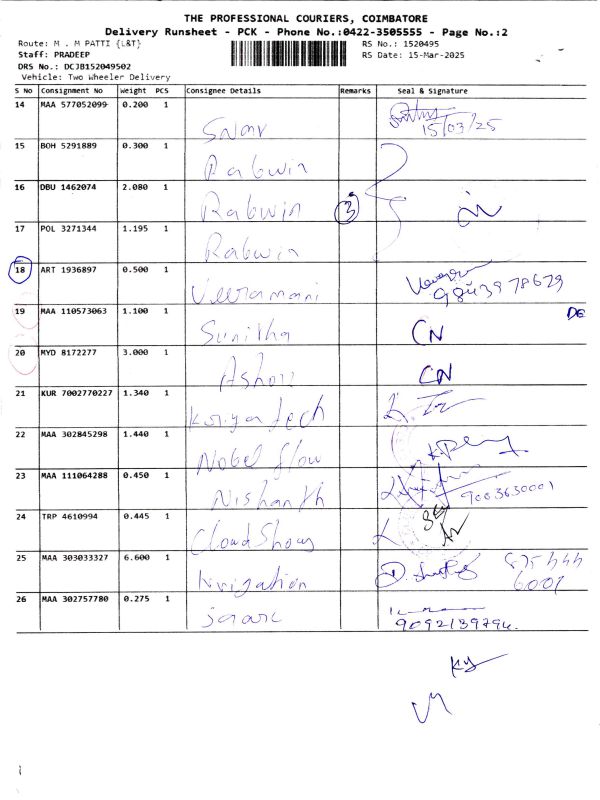 THE PROFESSIONAL COURIERS, COIMBATORE
Delivery Runsheet - PCK - Phone No.:0422-3505555 - Page No.:2
Route: M . M PATTI {L&T}
RS No.: 1520495
Staff: PRADEEP
RS Date: 15-Mar-2025
DRS No.: DCJB152049502
Vehicle: Two Wheeler Delivery
S No Consignment No Weight PCS Consignee Details Remarks Seal & Signature
14 MAA 577052099 0.200 1
15/03/25
15 BOH 5291889 0.300 1
Rabwin
16 DBU 1462074 2.080 1
Rabwin 3
17 POL 3271344 1.195 1
Rabwin
18 ART 1936897 0.500 1
Veeramani 9843978629
19 MAA 110573063 1.100 1
Sunitha CN
20 MYD 8172277 3.000 1
CN
21 KUR 7002770227 1.340 1
tech
22 MAA 302845298 1.440 1
Nobel flow
23 MAA 111064288 0.450 1
Nishanth 9003630001
24 TRP 4610994 0.445 1
Cloud
25 MAA 303033327 6.600 1
26 MAA 302757780 0.275 1